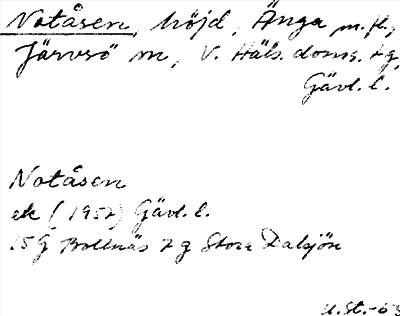 Notåsen, höjd, Änga m.fl.,
Järvsö sn, V. Häls. doms. tg,
Gävl. l.
Notåsen
ek (1957) Gävl. l.
15G Bollnäs 7 g Stora Dalsjön
U.St.-63